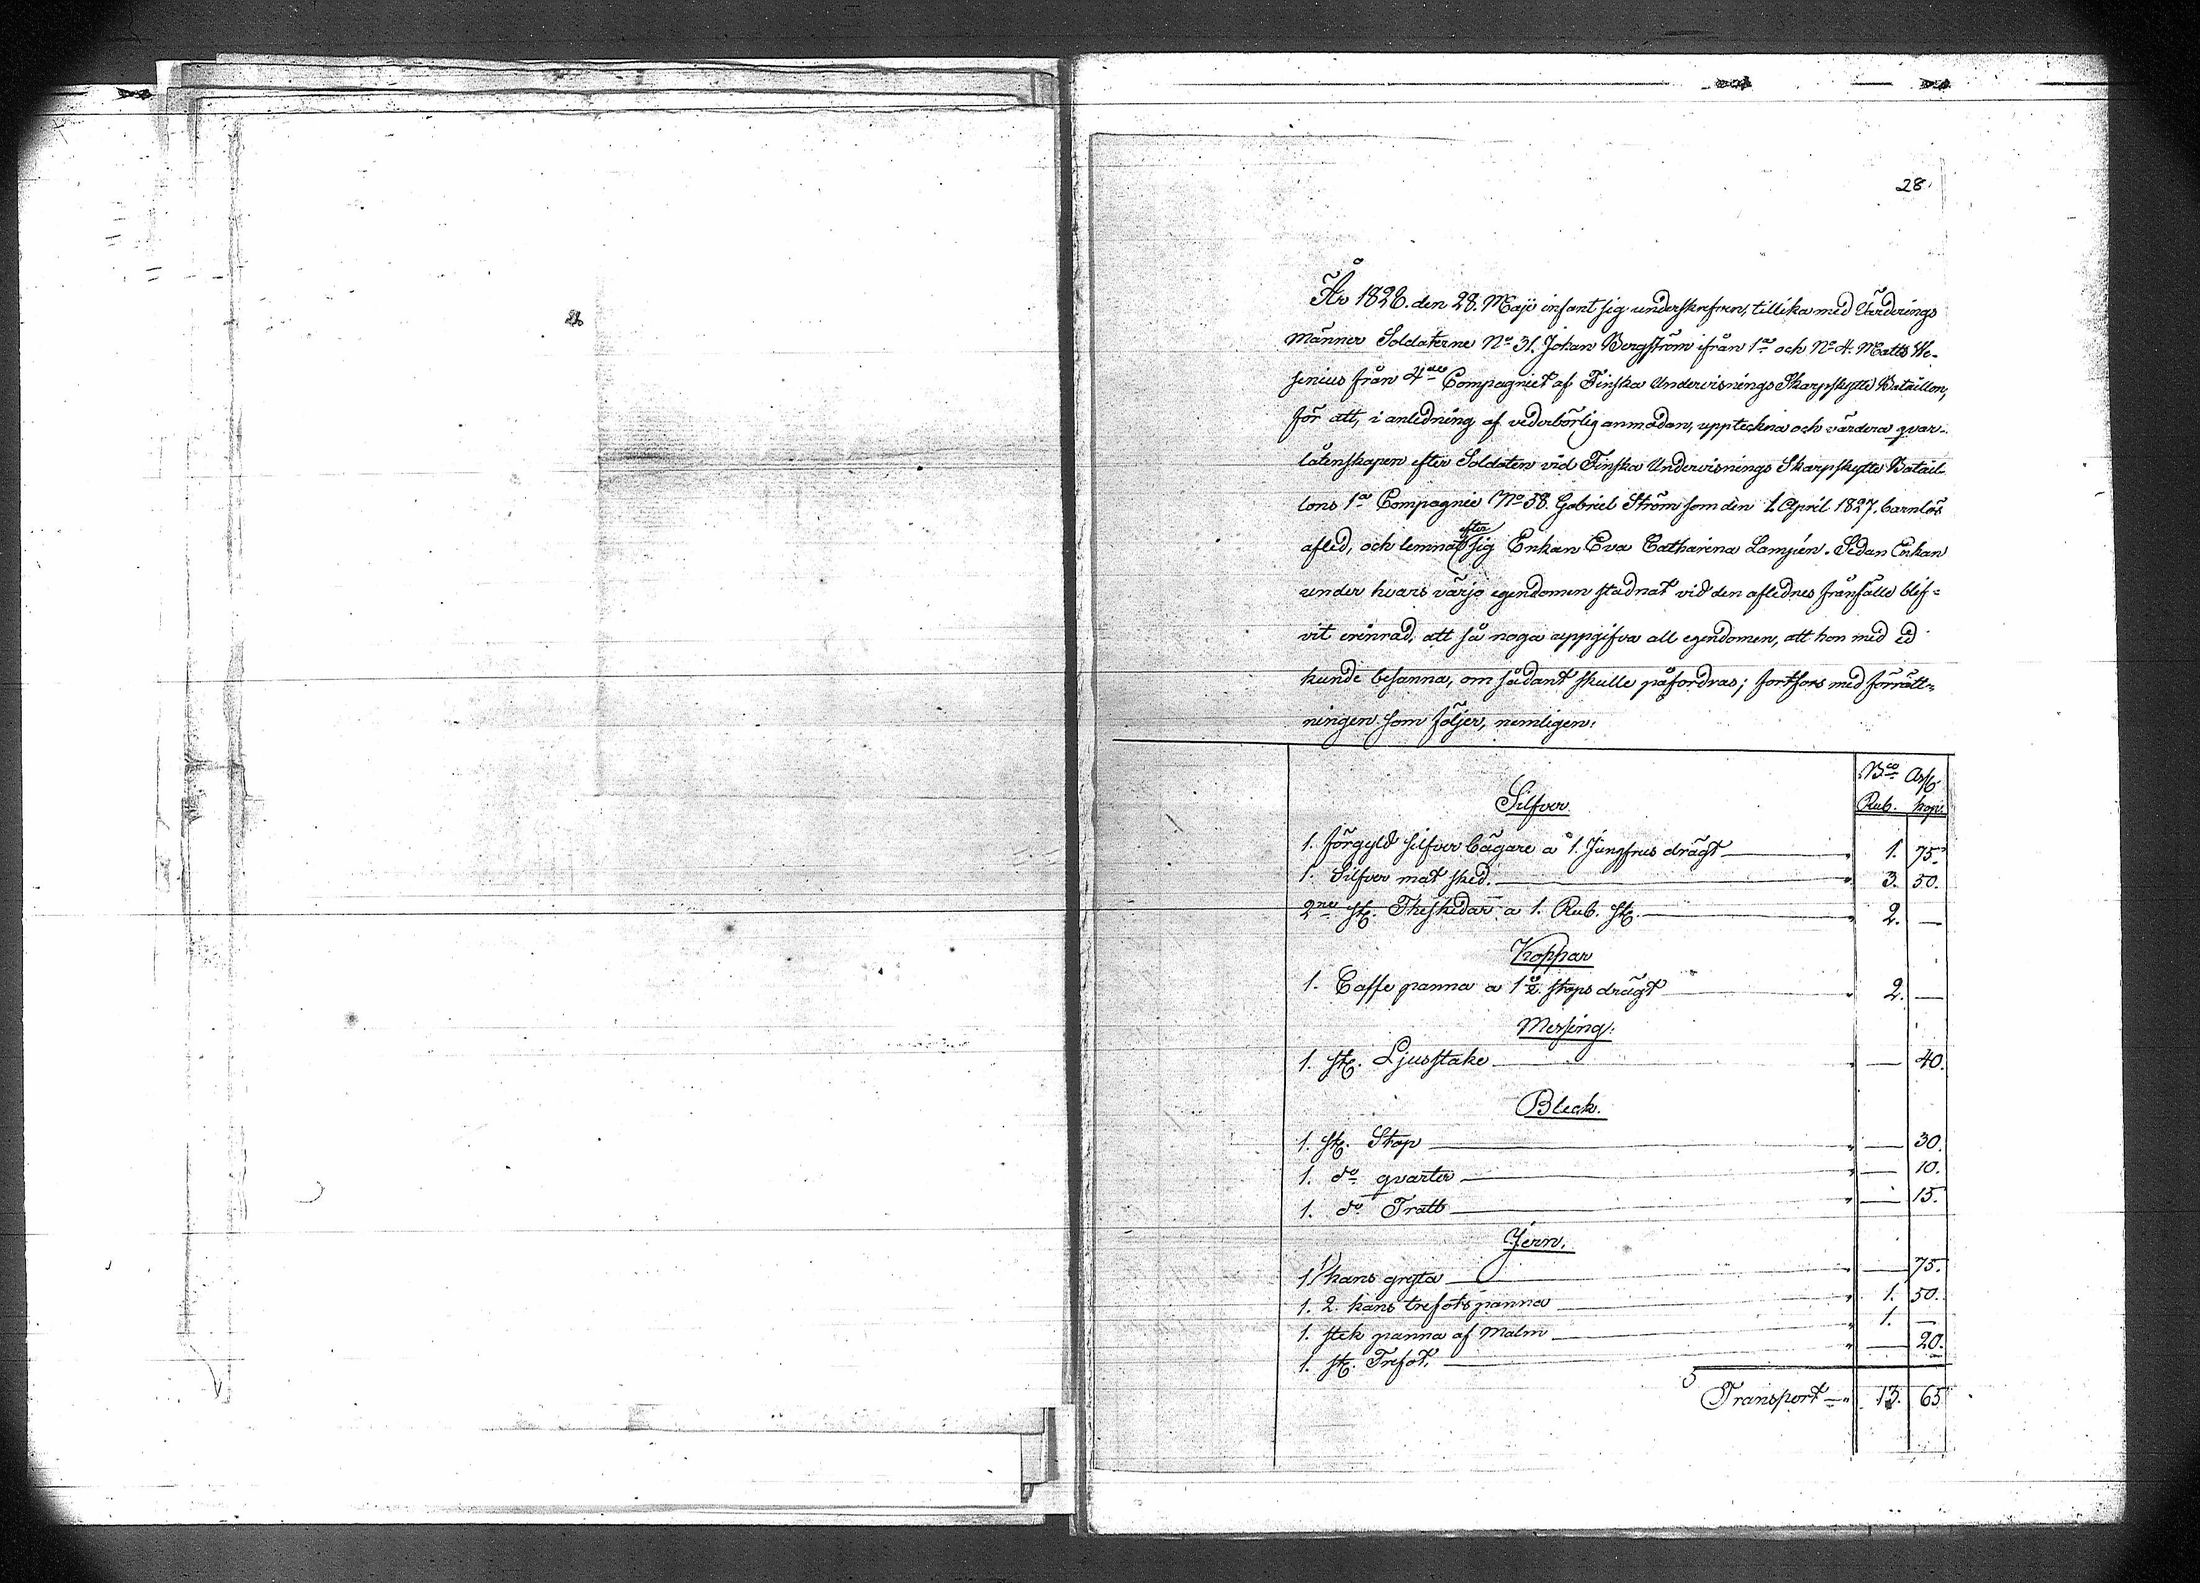 28.
År 1828. den 28. Maji infant sig underskrefven, tillika med Värderings
männer Soldaterne No 31. Johan Bergström ifrån 1a och No 4. Matts We-
senius från 4de Compagniet af Finska Undervisnings Skarpskytte Bataillon,
för att, i anledning af vederbörlig anmodan, uppteckna och värdera qvar-
låtenskapen efter Soldaten vid Finska Undervisnings Skarpskytte Batail-
lons 1a Compagnie No 58. Gabriel Ström som den 1. April 1827. barnlös
afled, och lemnat efter sig Enkan Eva Catharina Lampén. Sedan Enkan
under hvars värjo egendomen stadnat vid den aflednes frånfälle blif-
vit erinrad, att så noga uppgifva all egendomen, att hon med ed
kunde besanna, om sådant skulle påfordras; fortfors med förrätt-
ningen som följer, nemligen:
Bco Ass.
Silfver. Rub. kop.
1. förgyld silfver bägare a 1. Jungfrus drägt 1. 75.
1. Silfver mat sked. 3. 50.
2ne st. Theskedar a 1. Rub. st. 2. —
Koppar
1. Caffe panna a 1 ½ stops drägt 2. —
Messing.
1. st. Ljusstake — 40.
Bleck.
1. st. Stop — 30.
1. do qvarter — 10.
1. do Tratt — 15.
Jern.
1. kans gryta — 75.
1. 2. kans trefots panna 1. 50.
1. stek panna af Malm 1. —
1. st. Trefot. — 20.
Transport 13. 65